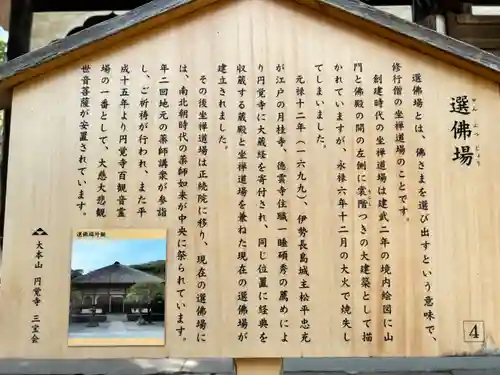 選佛場
せんぶつじょう
選佛場とは、佛さまを選び出すという意味で、
修行僧の坐禅道場のことです。
創建時代の坐禅道場は建武二年の境内絵図に山
門と佛殿の間の左側に裳階つきの大建築として描
もこし
かれていますが、永禄六年十二月の大火で焼失し
てしまいました。
元禄十二年(一六九九)、伊勢長島城主松平忠充
が江戸の月桂寺、徳雲寺住職一睡碩秀の薦めによ
り円覚寺に大蔵経を寄付され、同じ位置に経典を
収蔵する蔵殿と坐禅道場を兼ねた現在の選佛場が
建立されました。
その後坐禅道場は正続院に移り、現在の選佛場に
は、南北朝時代の薬師如来が中央に祭られています。
年二回地元の薬師講衆が参詣
し、ご祈祷が行われ、また平
成十五年より円覚寺百観音霊
場の一番として、大慈大悲観
世音菩薩が安置されています。
選佛場外観
大本山 円覚寺 三宝会
4